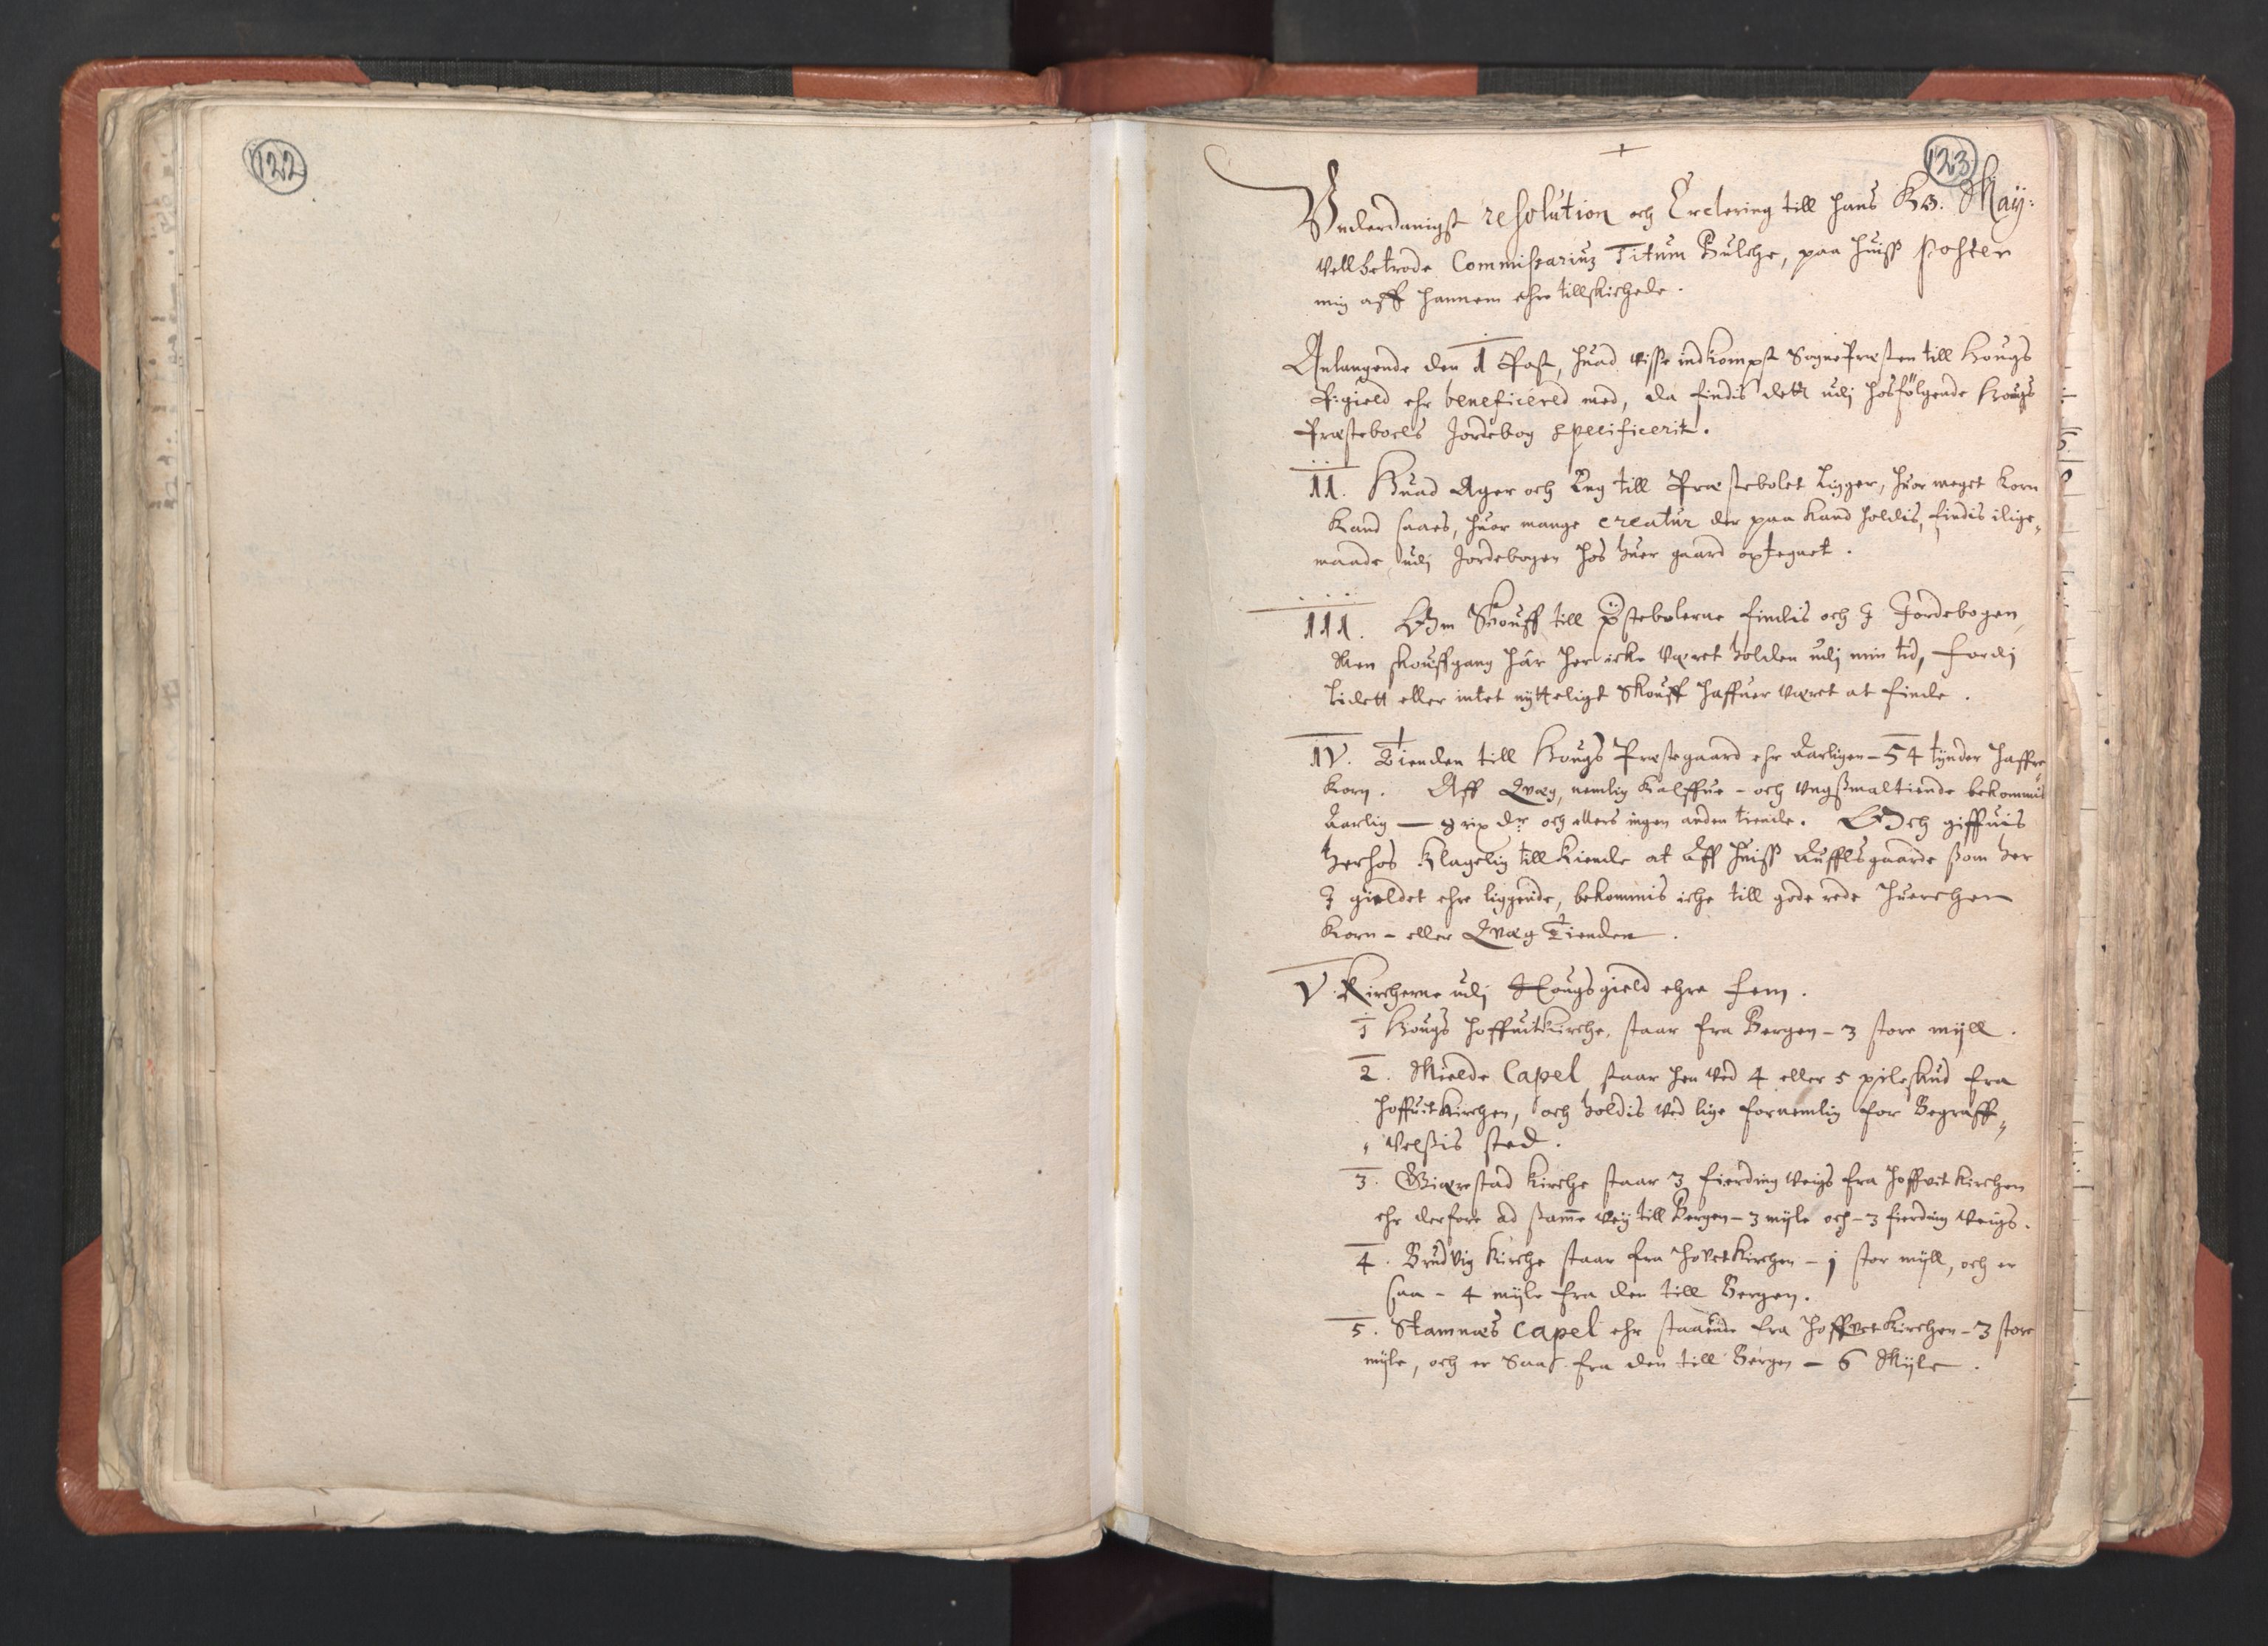 122
123
Underdanigst resolution och Erclering till hans Kg. May:
Vellbetrode Commissarius Titum Bulche, paa huiss poster
mig aff hannem ehre tillskichede.
Anlangende den 1 Post, huad visse indkompst SognePræsten till Hougs
P:gield ehr beneficered med, da findis dett udj hosfölgende Hougs
Præsteboels Jordebog specificerit.
II. Huad Ager och Eng till Præstebolet Ligger, huor meget Korn
Kand saaes, huor mange creatur der paa kand holdis, findis ilige-
maade udj Jordebogen hos huer gaard optegnet.
III. Om Skouff till Pstebolerne findis och I Jordebogen,
Men skouffgang här her icke været holden udj min tid, fordj
lidett eller intet nytteligt Skouff haffuer været at finde.
IV. Tienden till Hougs Præstegaard ehr Aarligen - 54 tynder haffre
Korn. Aff Qvæg, nemlig Kalffue - och Ungsmaltiende bekommis
Aarlig — 8 rix dr och ellers ingen anden tiende. Och giffuis
herhos Klagelig tillkiende at aff huiss Aufflsgaarde som her
I gieldet ehre liggende, bekommis iche till gode rede huerchen
Korn - eller Qvæg Tienden.
V. Kircherne udj Hougsgield ehre fem.
1 Hougs hoffuitkirche, staar fra Bergen - 3 store myll.
2. Mielde Capel staar hen ved 4 eller 5 pileskud fra
hoffuitkirchen, och holdis ved lige fornemlig for Begraff-
velsis sted.
3. Giærestad kirche staar 3 fierding veigs fra hoffvit kirchen
ehr derfore ad samme vey till Bergen - 3 myle och - 3 fierding veigs.
4. Brudvig kirche staar fra hovetkirchen - 1 stor myll, och er
saa - 4 myle fra den till Bergen.
5. Stamnæs Capel ehr staaende fra hoffvetkirchen - 3 store
myle, och er saa fra den till Bergen - 6 Myle.